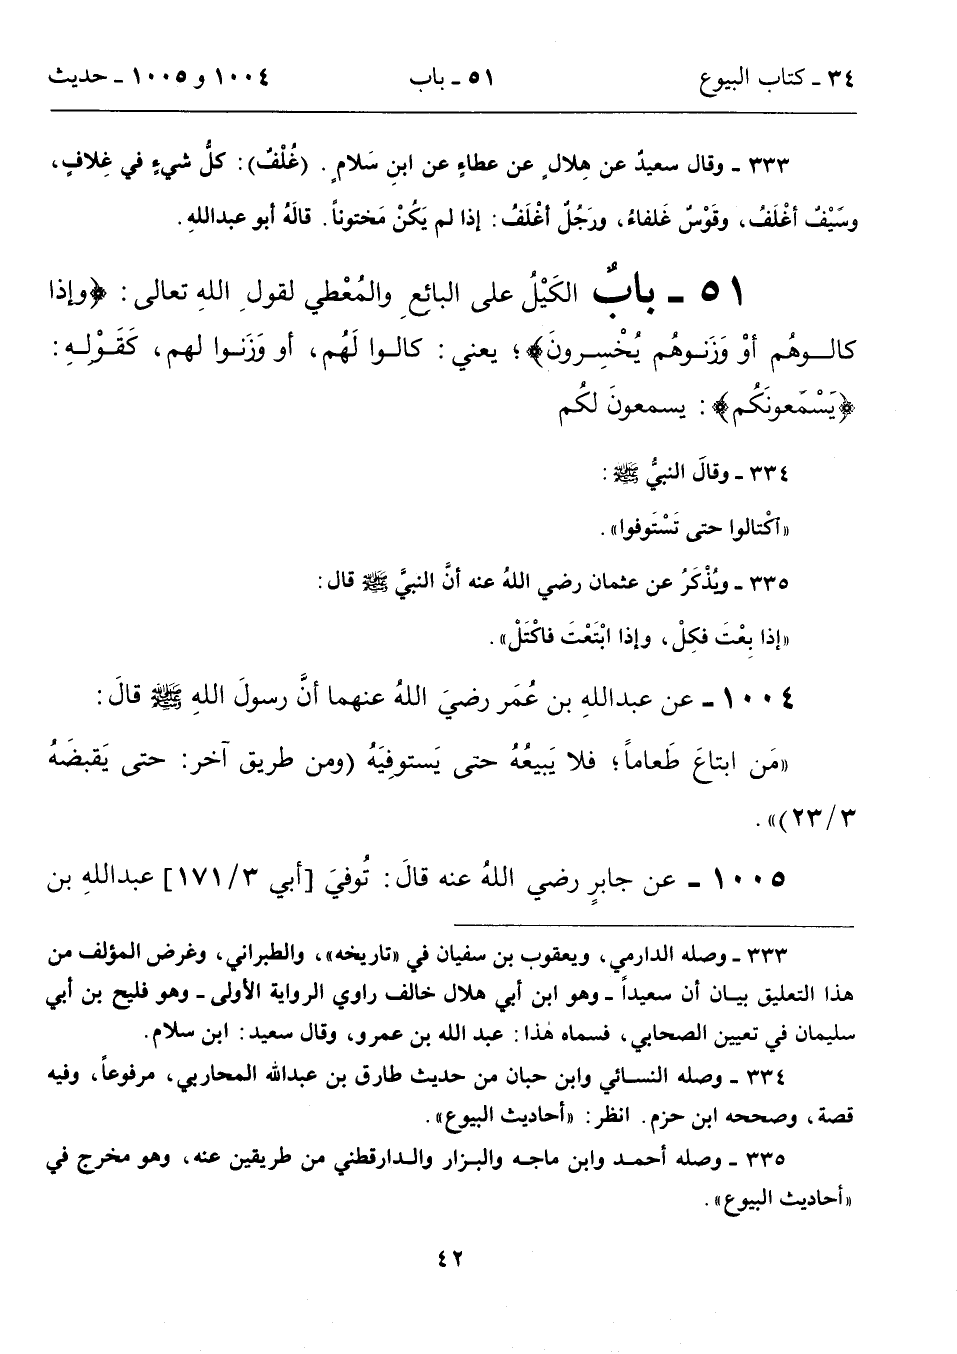 ٣٤ ـ كتاب البيوع ٥١ ـ باب ١٠٠٤ و ١٠٠٥ ـ حديث
٣٣٣ ـ وقال سعيدٌ عن هِلالٍ عن عطاءٍ عن ابنِ سَلامٍ . (غُلْفٌ): كلُّ شيءٍ في غِلافٍ،
وسَيْفٌ أغْلَفُ، وقَوْسٌ غَلفاءُ، ورَجُلٌ أغْلَفُ: إذا لم يَكُنْ مَختوناً. قالَهُ أبو عبداللهِ.
٥١ ـ بابٌ الكَيْلُ على البائعِ والمُعْطي لقولِ اللهِ تعالى: ﴿وإذا
كالوهُم أوْ وَزَنوهُم يُخْسِرونَ﴾؛ يعني: كالوا لَهُم، أو وَزَنوا لهم، كَقَوْلِهِ:
﴿يَسْمَعونَكُم﴾: يسمعونَ لكُم
٣٣٤ ـ وقالَ النبيُّ ﷺ:
«اكْتالوا حتى تَسْتَوفوا».
٣٣٥ ـ ويُذْكَرُ عن عثمان رضي اللهُ عنه أنَّ النبيَّ ﷺ قال:
«إذا بِعْتَ فكِلْ، وإذا ابْتَعْتَ فاكْتَلْ».
١٠٠٤ ـ عن عبداللهِ بن عُمَر رضيَ اللهُ عنهما أنَّ رسولَ اللهِ ﷺ قالَ:
«مَن ابتاعَ طَعاماً؛ فلا يَبيعُهُ حتى يَستوفِيَهُ (ومن طريق آخر: حتى يَقبضَهُ
٢٣/٣)».
١٠٠٥ ـ عن جابرٍ رضي اللهُ عنه قالَ: تُوفيَ [أبي ١٧١/٣] عبداللهِ بن
٣٣٣ ـ وصله الدارمي، ويعقوب بن سفيان في «تاريخه»، والطبراني، وغرض المؤلف من
هذا التعليق بيان أن سعيداً ـ وهو ابن أبي هلال خالف راوي الرواية الأولى ـ وهو فليح بن أبي
سليمان في تعيين الصحابي، فسماه هٰذا: عبد الله بن عمرو، وقال سعيد: ابن سلام.
٣٣٤ ـ وصله النسائي وابن حبان من حديث طارق بن عبدالله المحاربي، مرفوعاً، وفيه
قصة، وصححه ابن حزم. انظر: «أحاديث البيوع».
٣٣٥ ـ وصله أحمد وابن ماجه والبزار والدارقطني من طريقين عنه، وهو مخرج في
«أحاديث البيوع».
٤٢